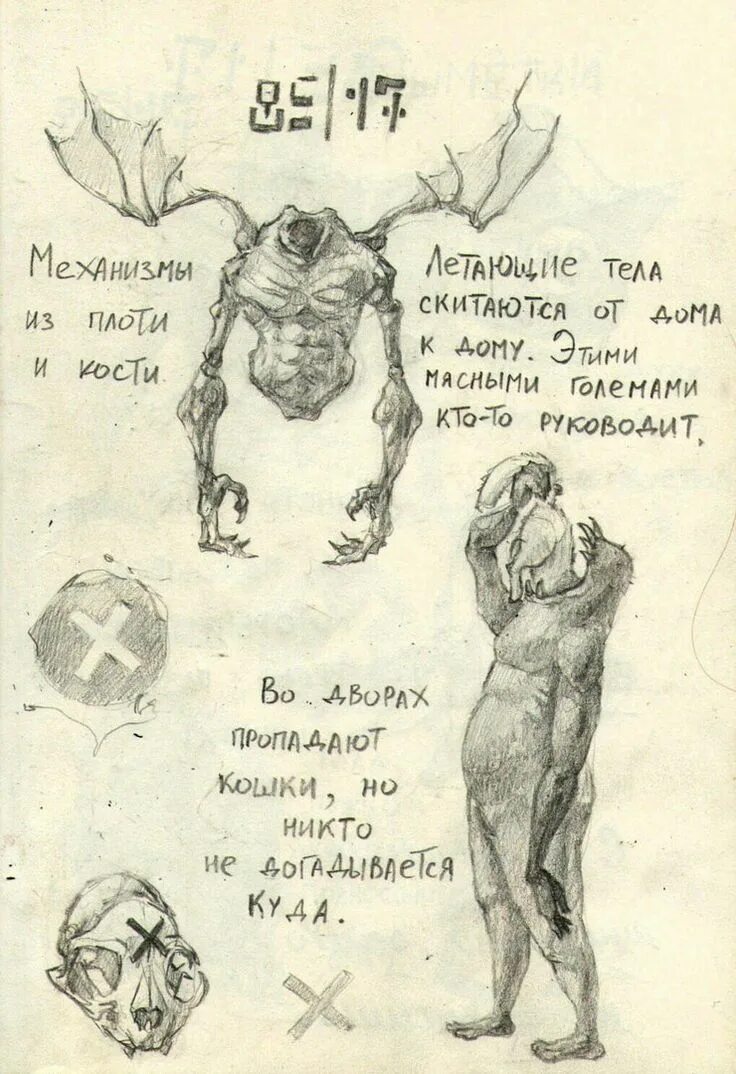 85|:17
Механизмы
из плоти
и кости
Летающие тела
скитаются от дома
к дому. Этими
мясными големами
кто-то руководит.
Во дворах
пропадают
кошки, но
никто
не догадывается
куда.